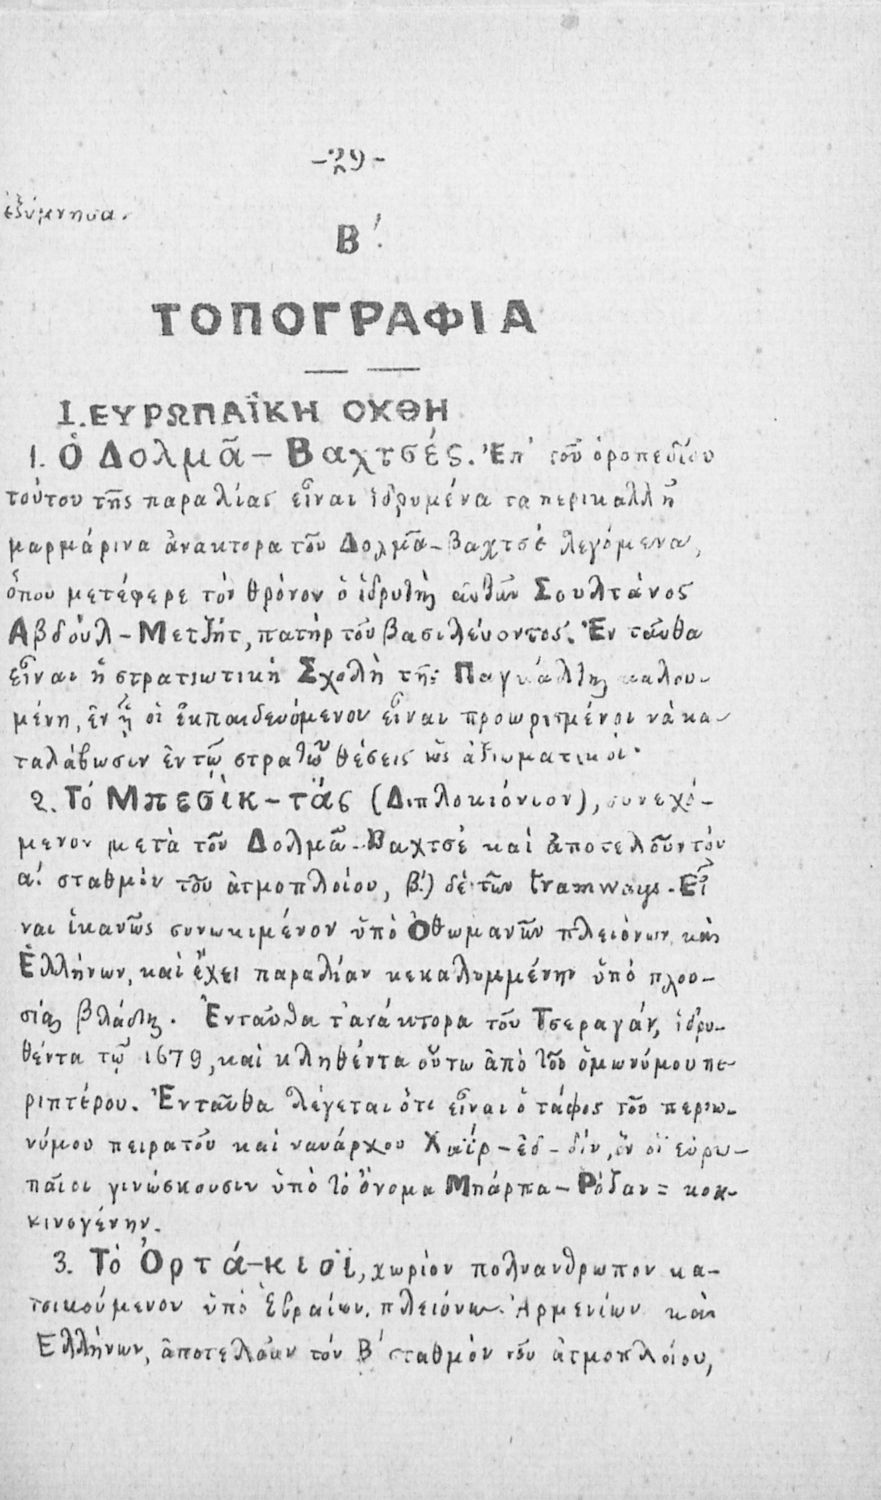 -29-
ἐξύμνησα.
Β'.
ΤΟΠΟΓΡΑΦΙΑ
Ι. ΕΥΡΩΠΑΪΚΗ ΟΧΘΗ
1. Ὁ Δολμᾶ-Βαχτσές. Ἐπ' τοῦ ὀροπεδίου
τούτου τῆς παραλίας εἶναι ἱδρυμένα τα περικαλλῆ
μαρμάρινα ἀνακτορα τοῦ Δολμᾶ-Βαχτσὲ λεγόμενα,
ὅπου μετέφερε τὸν θρόνον ὁ ἱδρυτὴς αὐτῶν Σουλτάνος
Ἀβδοὺλ-Μετζήτ, πατὴρ τοῦ βασιλεύοντος. Ἐν ταῦθα
εἶναι ἡ στρατιωτικὴ Σχολὴ τῆς Παγκάλτης καλου-
μένη, ἐν ᾗ οἱ ἐκπαιδευόμενον εἶναι προωρισμένοι νὰ κα-
ταλάβωσιν ἐν τῷ στρατῷ θέσεις ὡς ἀξιωματικοί·
2. Τὸ Μπεσὶκ-τὰς (Διπλοκιόνιον), συνεχό-
μενον μετὰ τοῦ Δολμᾶ-Βαχτσὲ καὶ ἀποτελοῦν τὸν
α'. σταθμὸν τοῦ ἀτμοπλοίου, β'.) δὲ τῶν tramways. Εἶ
ναι ἱκανῶς συνωκιμένον ὑπὸ Ὀθωμανῶν πλειόνων καὶ
Ἑλλήνων, καὶ ἔχει παραλίαν κεκαλυμμένην ὑπὸ πλου-
σίας βλάστης. Ἐνταῦθα τ' ἀνάκτορα τοῦ Τσεραγάν, ἱδρυ-
θέντα τῷ 1679, καὶ κληθέντα οὕτω ἀπὸ τοῦ ὁμωνύμου πε-
ριπτέρου. Ἐνταῦθα λέγεται ὅτι εἶναι ὁ τάφος τοῦ περιω-
νύμου πειρατοῦ καὶ ναυάρχου Χαϊρ-ἐδ-δίν, ὃν οἱ εὐρω-
παῖοι γινώσκουσιν ὑπὸ τὸ ὄνομα Μπάρπα-Ρόζαν = κοκ-
κινογένην.
3. Τὸ Ὀρτά-κιοϊ, χωρίον πολυανθρωπον κα-
τοικούμενον ὑπὸ Ἑβραίων. πλειόνων Ἀρμενίων καὶ
Ἑλλήνων, ἀποτελοῦν τὸν Β' σταθμὸν τοῦ ἀτμοπλοίου,